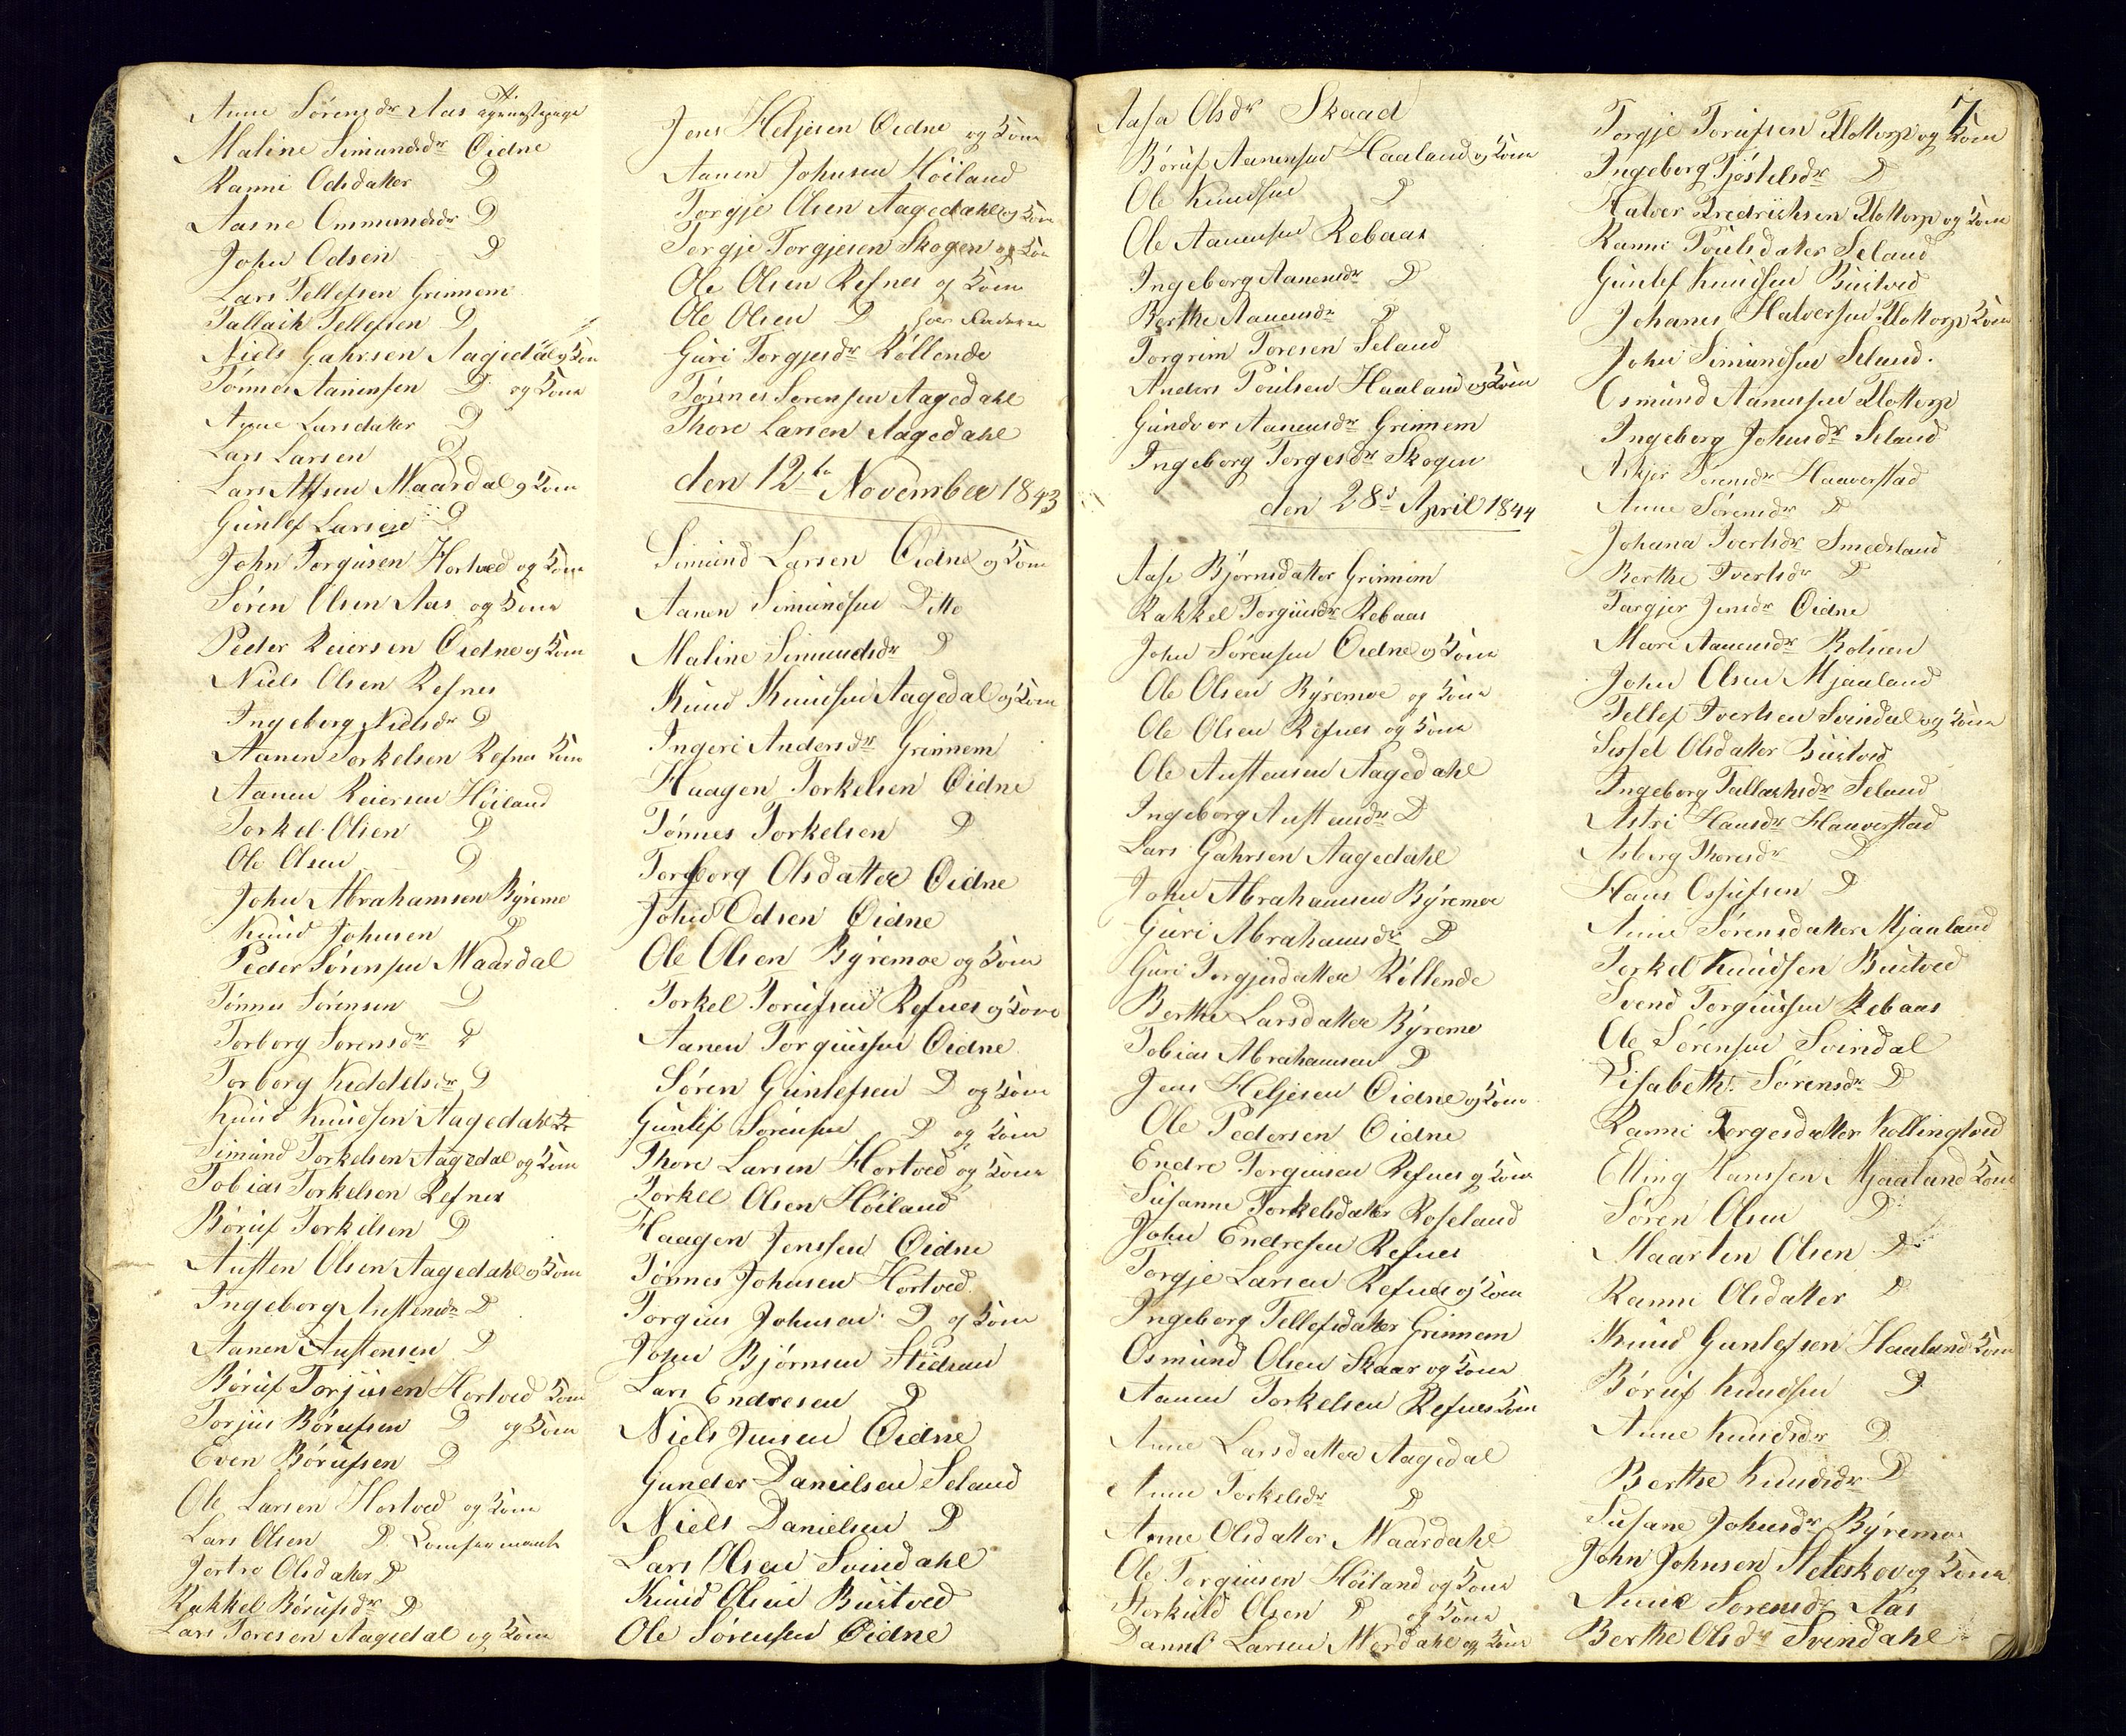 Anne Sørensdr Aas
Maline Simundsdr Øidne
Ranni Odsdatter D
Aasne Ommundsdr D
John Odsen D
Lars Tellefsen Grinnem
Tallach Tellefsen D
Niels Gahrsen Aagedal og Kone
Tønnes Aanensen D og Kone
Anne Larsdatter D
Lars Larsen D
Lars Alfsen Maardal og Kone
Gunlef Larsen D
John Torgiusen Hortved og Kone
Søren Olsen Aas og Kone
Peder Reiersen Øidne og Kone
Niels Olsen Refnes
Ingeborg Nielsdr D
Aanen Torkelsen Refnes Kone
Aanen Reiersen Höiland
Torkel Olsen D
Ole Olsen D
John Abrahamsen Býremo
Knud Johnsen D
Peder Sørensen Maardal
Tønnes Sørensen D
Torborg Sørensdr D
Torborg Keddelsdr D
Knud Knudsen Aagedahl
Simund Torkelsen Aagedal og Kone
Tobias Torkelsen Refnes
Børuf Torkelsen D
Austen Olsen Aagedahl og Kone
Ingeborg Austensdr D
Aanen Austensen D
Børuf Torjusen Hortved Kone
Torjus Børufsen D og Kone
Even Børufsen D
Ole Larsen Hortved og Kone
Lars Olsen D
Jortro Olsdatter D
Rakkel Børufsdr D
Lars Toresen Aagedal og Kone
Jens Heljesen Øidne og Kone
Aanen Johnsen Höiland
Torgje Olsen Aagedahl og Kone
Torgje Torgjesen Skogen og Kone
Ole Olsen Refnes og Kone
Ole Olsen D
Guri Torgjesdr Röllende
Tønnes Sørensen Aagedahl
Thore Larsen Aagedahl
den 12te November 1843
Simund Larsen Øidne og Kone
Aanen Simundsen Ditto
Maline Simundsdr D
Knud Knudsen Aagedal og Kone
Ingeri Andersdr Grinnem
Haagen Torkelsen Øidne
Tønnes Torkelsen D
Torborg Olsdatter Øidne
John Odsen Øidne
Ole Olsen Býremoe og Kone
Torkel Torufsen Refnes og Kone
Aanen Torgiussen Øidne
Søren Gunlefsen D og Kone
Gunlef Sørensen D og Kone
Thore Larsen Hortved og Kone
Torkel Olsen Höiland
Haagen Jenssen Øidne
Tønnes Johnsen Hortved
Torgius Johnsen D og Kone
John Bjørnsen Stedsan
Lars Endresen D
Niels Jensen Øidne
Gunder Danielsen Seland
Niels Danielsen D
Lars Olsen Svindahl
Knud Olsen Bustved
Ole Sørensen Øidne
Aasa Olsdr Skaad
Børuf Aanensen Haaland og Kone
Ole Knudsen D
Ole Aanensen Rebaas
Ingeborg Aanensdr D
Berthe Aanensdr D
Torgrim Toresen Seland
Anders Poulsen Haaland og Kone
Gundvor Aanensdr Grinnem
Ingeborg Torgesdr Skogen
den 28d April 1844
Aase Bjørnsdatter Grinnem
Rakkel Torgiusdr Rebaas
John Sørensen Øidne og Kone
Ole Olsen Býremoe og Kone
Ole Olsen Refnes og Kone
Ole Austensen Aagedahl
Ingeborg Austensdr D
Lars Gahrsen Aagedahl
John Abrahamsen Býremoe
Guri Abrahamsdr D
Guri Torgjesdatter Röllende
Berthe Larsdatter Býremo
Tobias Abrahamsen D
Jens Heljesen Øidne og Kone
Ole Pedersen Øidne
Endre Torgiusen Refnes og Kone
Susanne Torkelsdatter Roseland
John Endresen Refnes
Torgje Larsen Refnes og Kone
Ingeborg Tellefsdatter Grinnem
Osmund Olsen Skaar og Kone
Aanen Torkelsen Refnes Kone
Anne Larsdatter Aagedal
Anne Torkelsdr D
Anne Olsdatter Maardahl
Ole Torgiusen Höiland og Kone
Storkuld Olsen D og Kone
Daniel Larsen Mordahl og Kone
7
Torgje Torufsen Flottorp og Kone
Ingeborg Tjöstelsdr D
Halvor Fredrichsen Flottorp og Kone
Ranni Poulsdatter Seland
Gunlef Knudsen Bustved
Johanes Halvorsen Flottorp Kone
John Simundsen Seland.
Osmund Aanensen Flottorp
Ingeborg Johnsdr Seland
Askjer Sørensdr Haaverstad
Anne Sørensdr D
Johana Ivertsdr Smedsland
Berthe Ivertsdr D
Targjer Jensdr Øidne
Mari Aanensdr Bolsien
John Olsen Mjaaland
Tellef Ivertsen Svindal og Kone
Sissel Olsdatter Bustved
Ingeborg Tallachsdr Seland
Astri Hansdr Haaverstad
Asberg Thoresdr D
Hans Ossufsen D
Anne Sørensdatter Mjaaland
Torkel Knudsen Bustved
Svend Torgiussen Rebaas
Ole Sørensen Svindal
Lisabeth Sørensdr D
Ranni Torgesdatter Kollingtved
Elling Hanssen Mjaaland Kone
Søren Olsen D
Maarten Olsen D
Ranni Olsdatter D
Knud Gunlefsen Haaland Kone
Børuf Knudsen D
Anne Knudsdr D
Berthe Knudsdr D
Susane Johnsdr Býremo
John Johnsen Steleskov og Kone
Anne Sørensdr Aas
Berthe Olsdr Svindahl